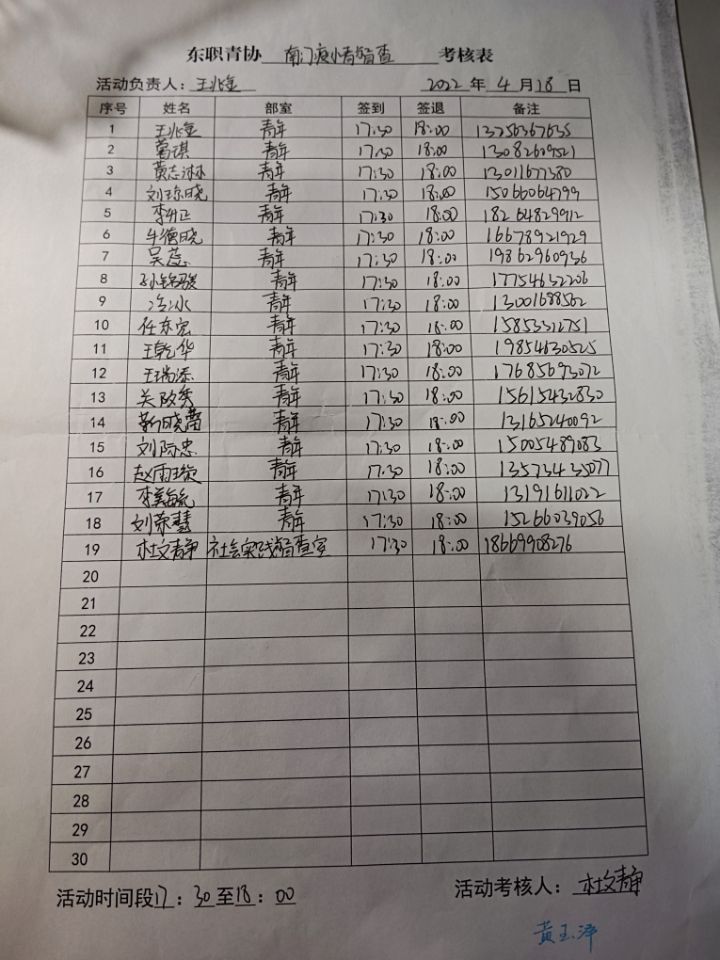 东职青协 南门疫情督查 考核表
活动负责人：王兆金 2022 年 4 月 18 日
序号 姓名 部室 签到 签退 备注
1 王兆金 青年 17:30 18:00 13256367635
2 葛琪 青年 17:30 18:00 13082609521
3 黄志沐 青年 17:30 18:00 13011677380
4 刘琼晓 青年 17:30 18:00 15066064799
5 李升正 青年 17:30 18:00 18264829912
6 牛德晓 青年 17:30 18:00 16678921929
7 吴蕊 青年 17:30 18:00 19862960936
8 孙锦骏 青年 17:30 18:00 17754632206
9 冷冰 青年 17:30 18:00 13001688562
10 任东宏 青年 17:30 18:00 15853312751
11 王乾华 青年 17:30 18:00 19854630525
12 王瑞添 青年 17:30 18:00 17685693072
13 关改秀 青年 17:30 18:00 15615432830
14 靳晓蕾 青年 17:30 18:00 13165240092
15 刘际忠 青年 17:30 18:00 15005489083
16 赵雨璇 青年 17:30 18:00 13573435077
17 李美毓 青年 17:30 18:00 13191611022
18 刘荣慧 青年 17:30 18:00 15266039056
19 杜文静 社会实践督查室 17:30 18:00 18669908276
20
21
22
23
24
25
26
27
28
29
30
活动时间段17：30至18：00 活动考核人：杜文静
黄玉萍